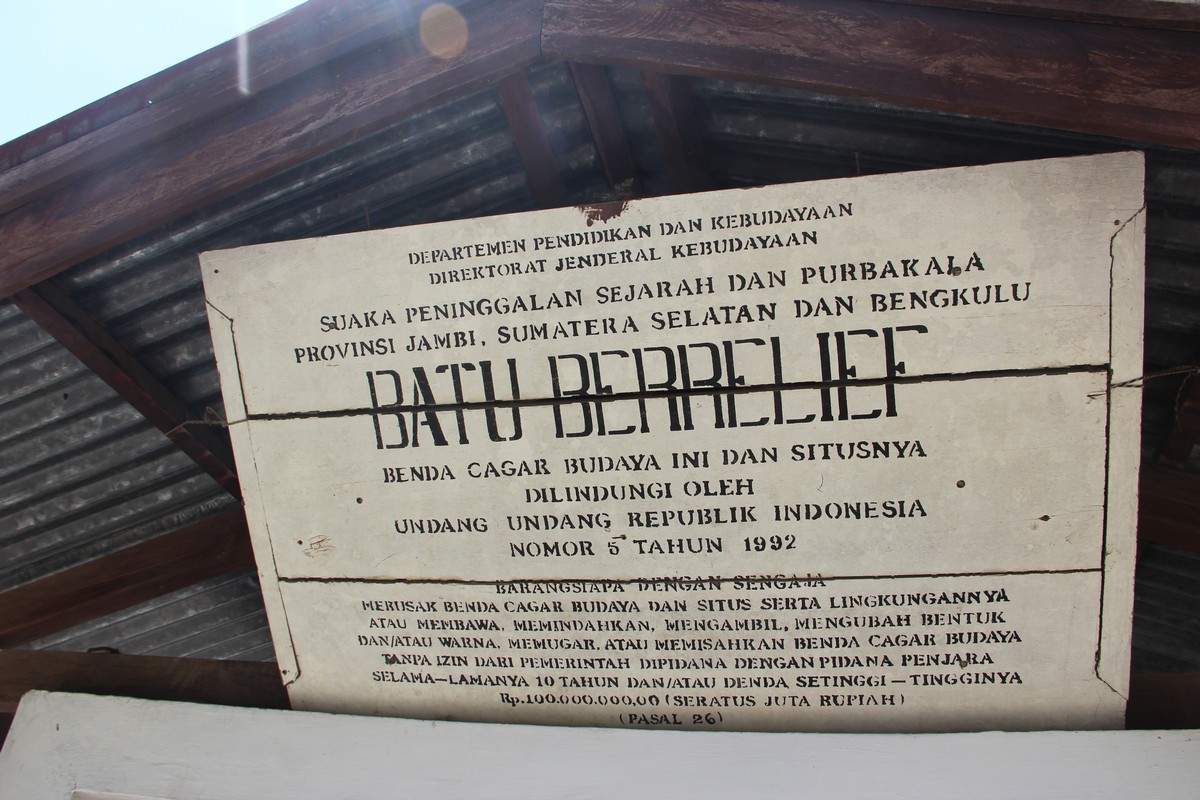 DEPARTEMEN PENDIDIKAN DAN KEBUDAYAAN
DIREKTORAT JENDERAL KEBUDAYAAN
SUAKA PENINGGALAN SEJARAH DAN PURBAKALA
PROVINSI JAMBI, SUMATERA SELATAN DAN BENGKULU
BATU BERRELIEF
BENDA CAGAR BUDAYA INI DAN SITUSNYA
DILINDUNGI OLEH
UNDANG UNDANG REPUBLIK INDONESIA
NOMOR 5 TAHUN 1992
BARANGSIAPA DENGAN SENGAJA
MERUSAK BENDA CAGAR BUDAYA DAN SITUS SERTA LINGKUNGANNYA
ATAU MEMBAWA, MEMINDAHKAN, MENGAMBIL, MENGUBAH BENTUK
DAN/ATAU WARNA, MEMUGAR, ATAU MEMISAHKAN BENDA CAGAR BUDAYA
TANPA IZIN DARI PEMERINTAH DIPIDANA DENGAN PIDANA PENJARA
SELAMA-LAMANYA 10 TAHUN DAN/ATAU DENDA SETINGGI-TINGGINYA
Rp.100.000.000,00 (SERATUS JUTA RUPIAH)
(PASAL 26)